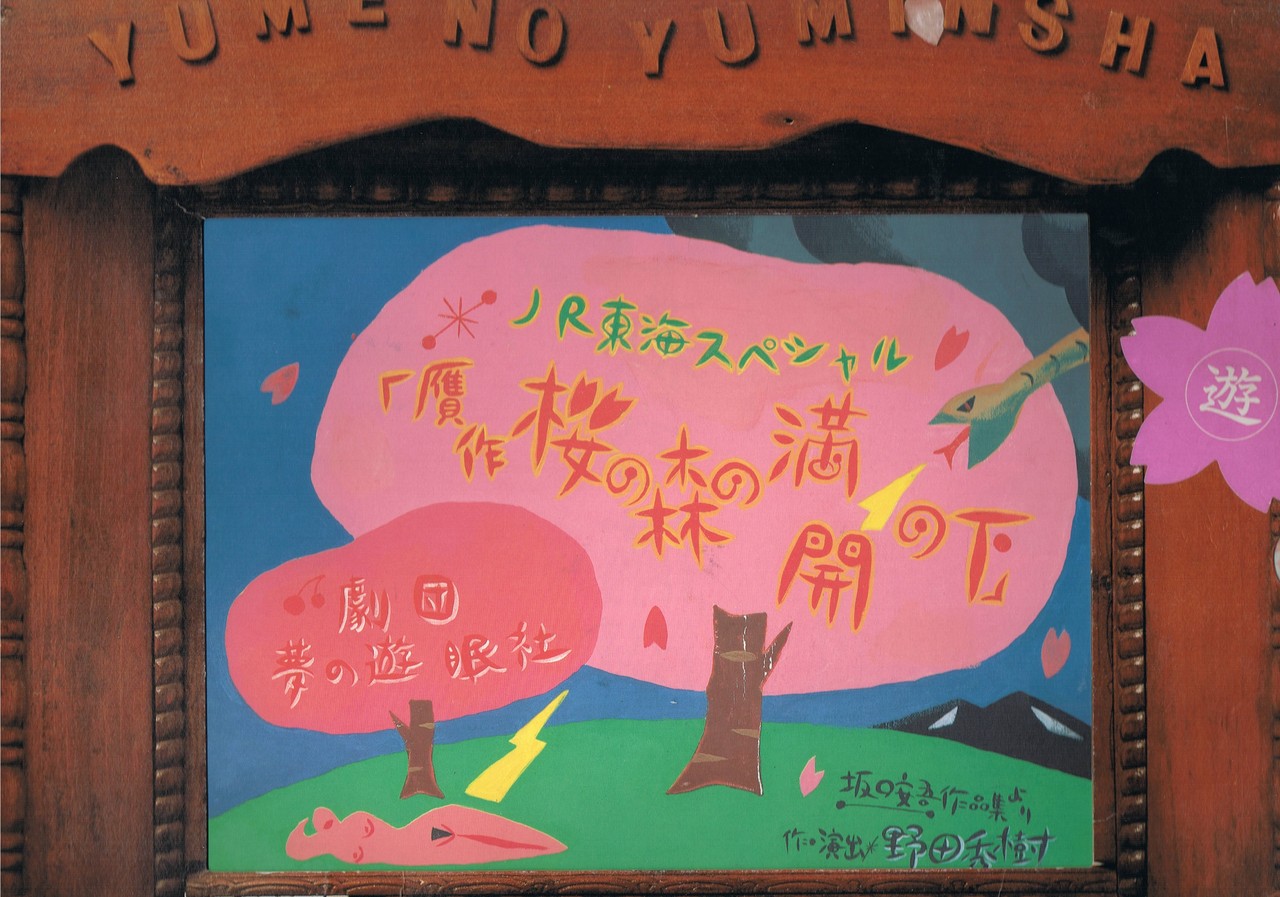 YUME NO YUMINSHA
JR東海スペシャル
「贋作桜の森の満開の下」
遊
劇団
夢の遊眠社
坂口安吾作品集より
作・演出 野田秀樹